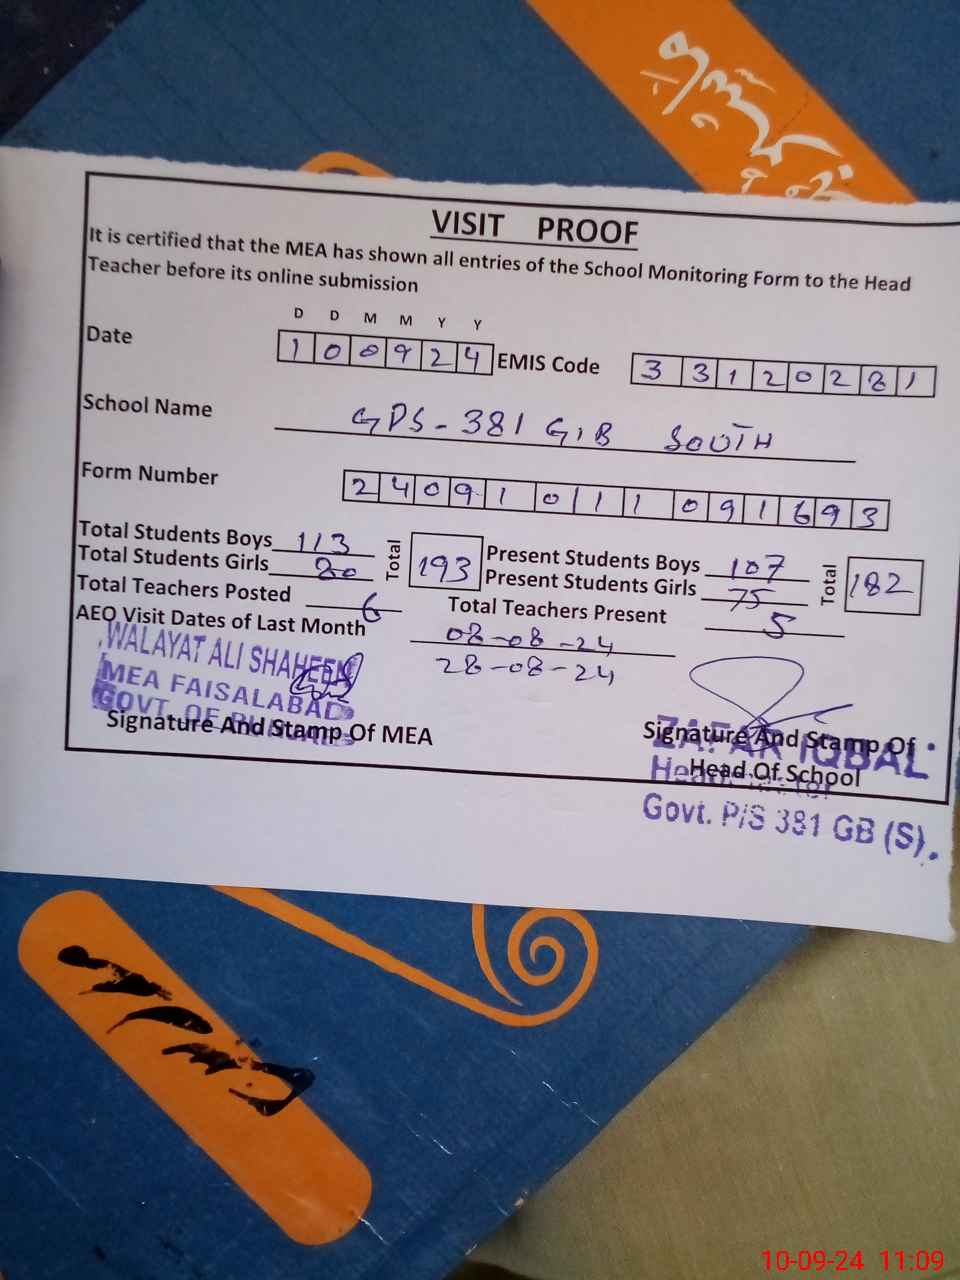 VISIT PROOF
It is certified that the MEA has shown all entries of the School Monitoring Form to the Head
Teacher before its online submission
D D M M Y Y
Date 1 0 0 9 2 4 EMIS Code 3 3 1 2 0 2 8 1
School Name GPS-381 G,B SOUTH
Form Number 2 4 0 9 1 0 1 1 0 9 1 6 9 3
Total Students Boys 113 Total 193 Present Students Boys 107 Total 182
Total Students Girls 80 Present Students Girls 75
Total Teachers Posted 6 Total Teachers Present 5
AEO Visit Dates of Last Month 08-08-24
28-08-24
WALAYAT ALI SHAHEEN
MEA FAISALABAD
GOVT. OF PUNJAB
Signature And Stamp Of MEA
Signature And Stamp Of
Head Of School
ZAFAR IQBAL
Headmaster
Govt. P/S 381 GB (S).
10-09-24 11:09